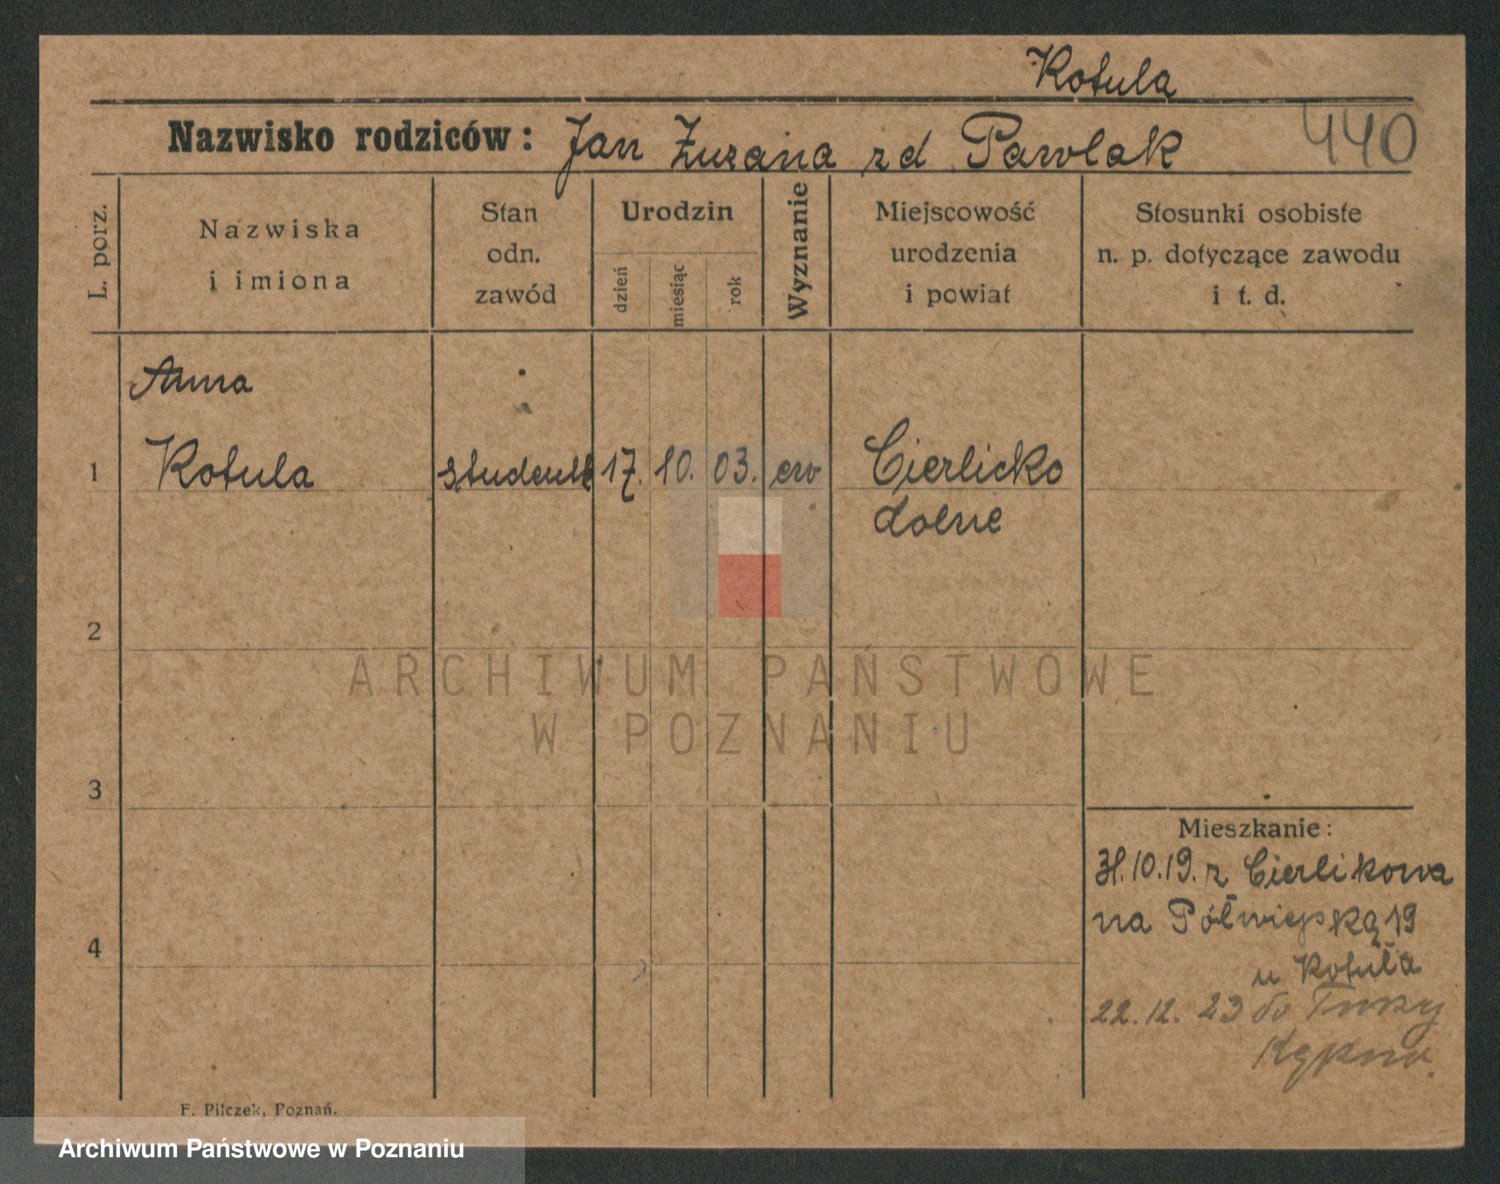 Kotula
Nazwisko rodziców: Jan Zuzana zd Pawlak
440
L. porz.
Nazwiska
i imiona
Stan
odn.
zawód
Urodzin
dzień
miesiąc
rok
Wyznanie
Miejscowość
urodzenia
i powiat
Stosunki osobiste
n. p. dotyczące zawodu
i t. d.
Anna
1 Kotula 17. 10. 03. ew Cierlicko
dolne
2
ARCHIWUM PAŃSTWOWE
W POZNANIU
3
Mieszkanie:
31.10.19. z Cierlikowa
na Półwiejską 19
4
u Kotuła
22. 12. 23 do
Kępno.
F. Pilczek, Poznań.
Archiwum Państwowe w Poznaniu